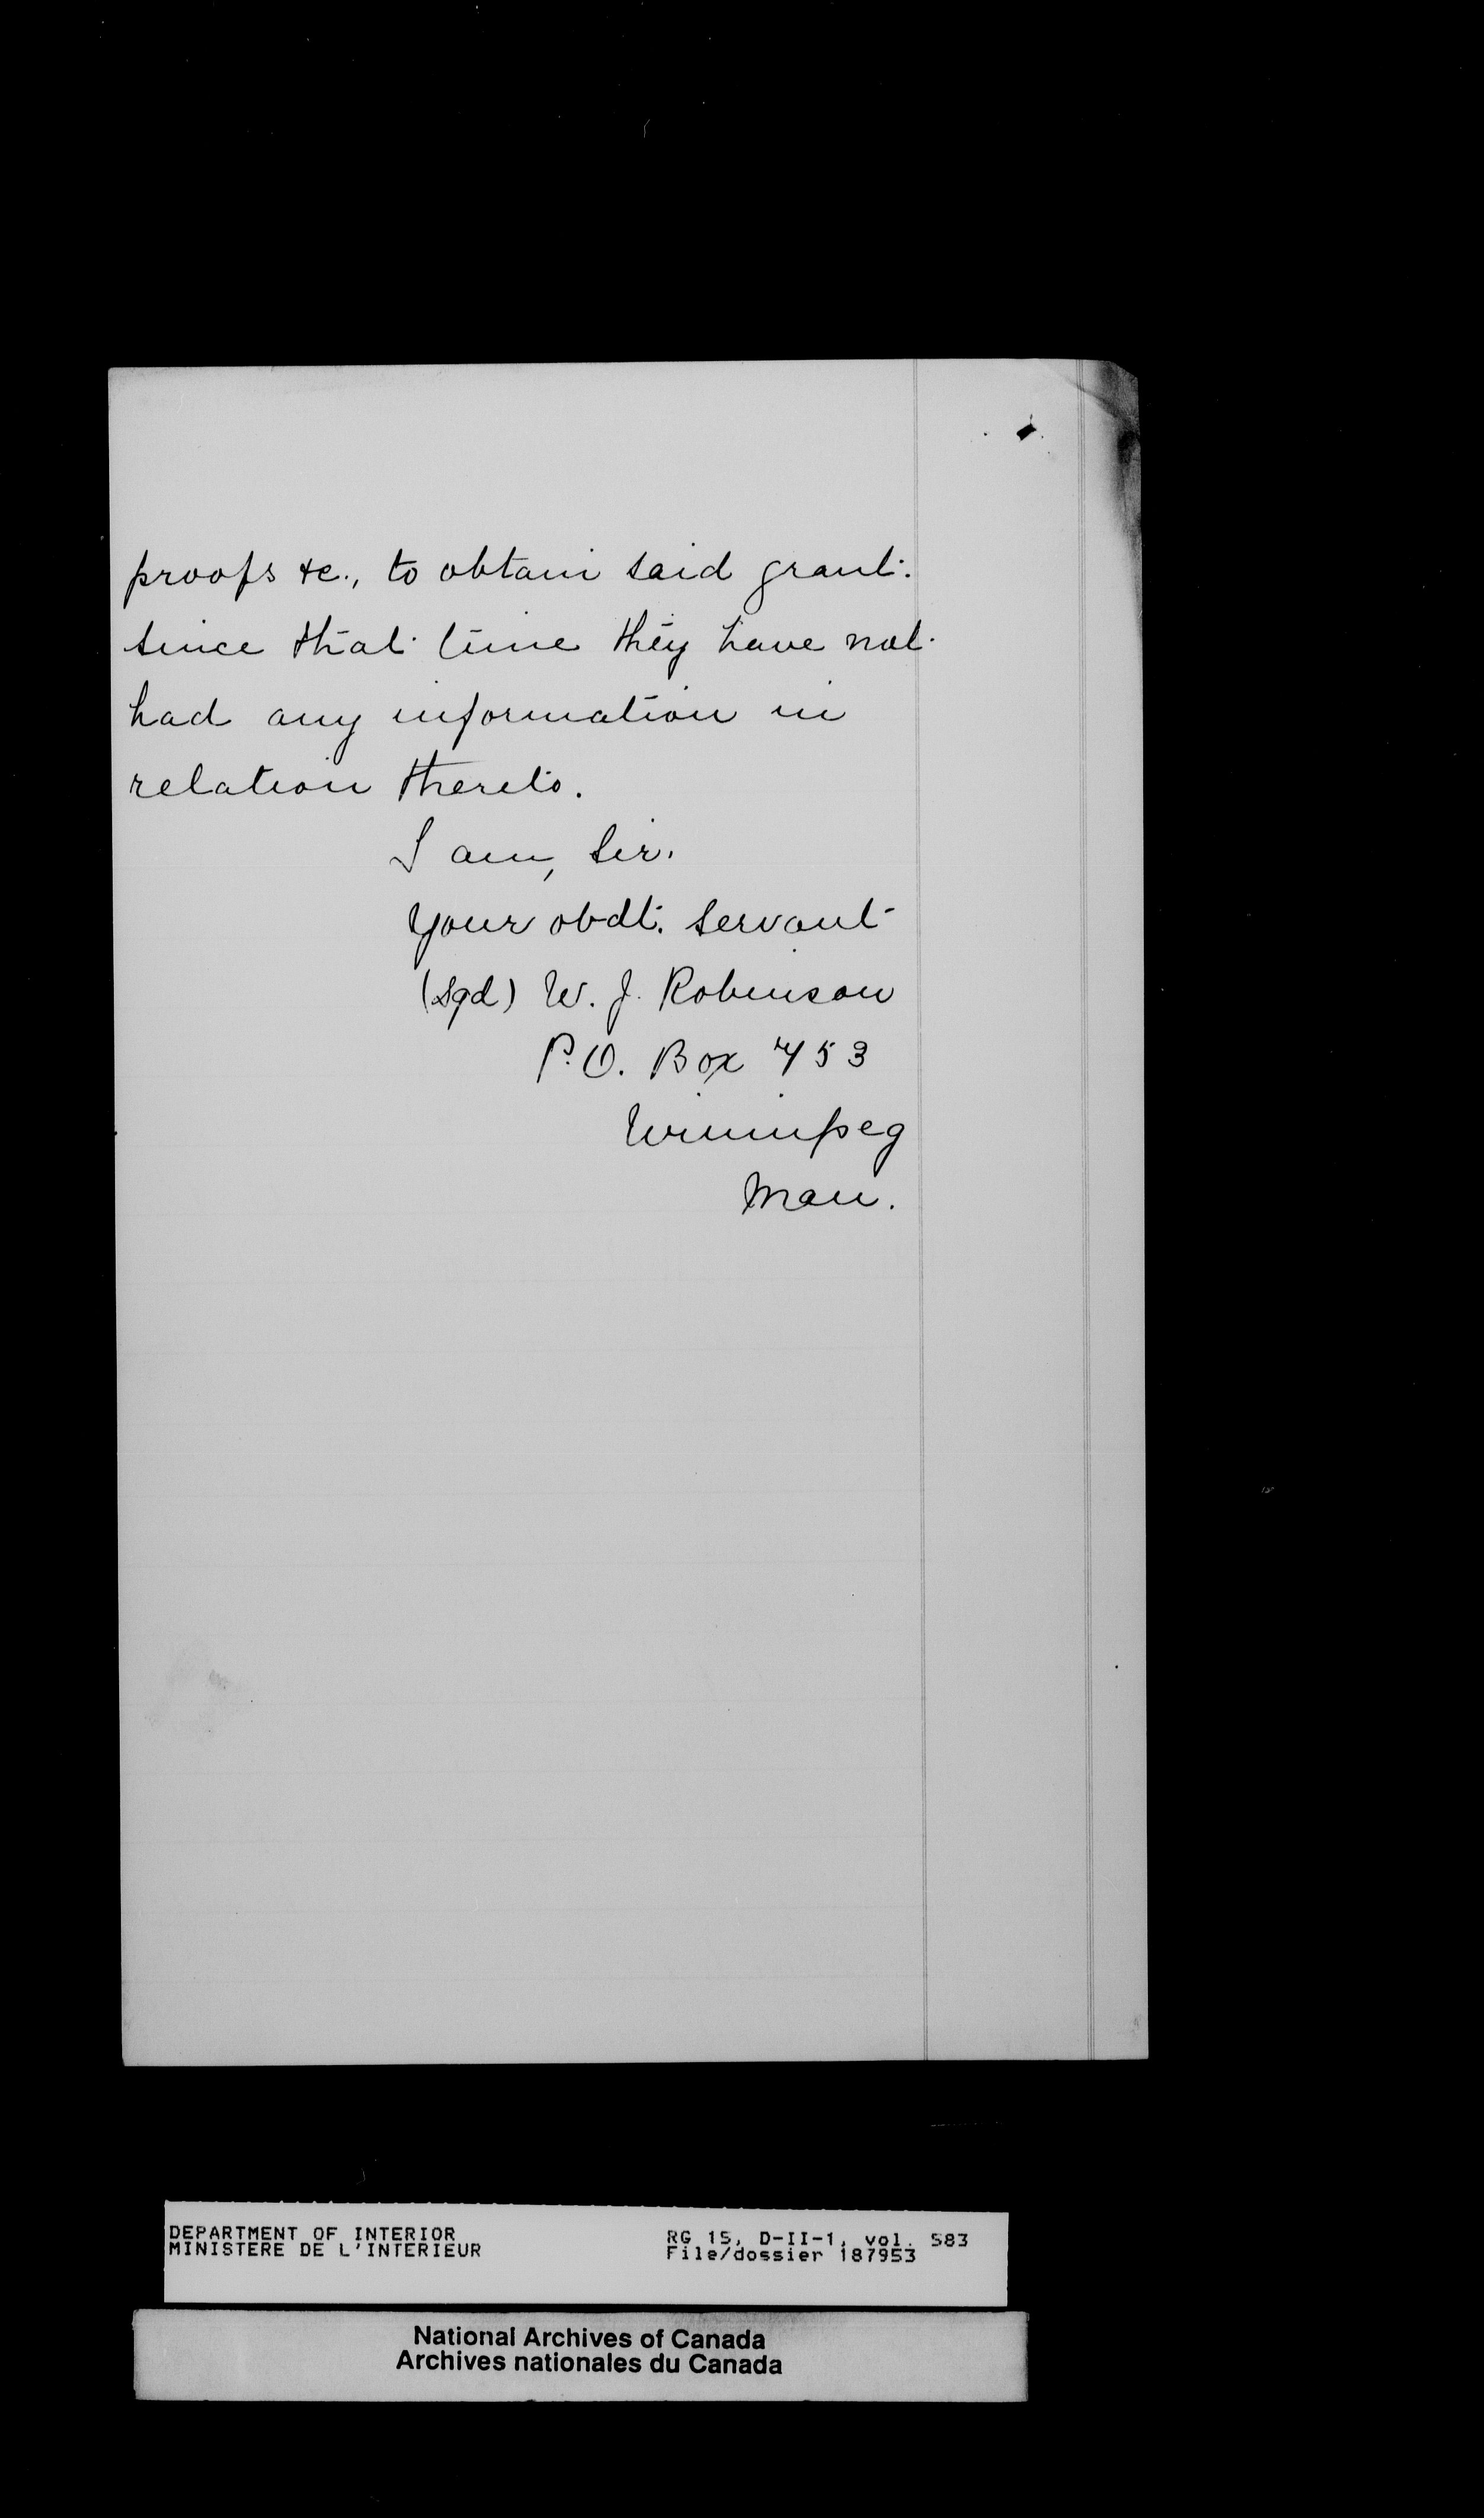 proofs &c., to obtain said grant.
since that time they have not
had any information in
relation thereto.
I am, Sir,
Your obdt. Servant
(Sgd) W. J. Robinson
P.O. Box 753
Winnipeg
Man.
DEPARTMENT OF INTERIOR
MINISTERE DE L'INTERIEUR
RG 15, D-II-1, vol. 583
File/dossier 187953
National Archives of Canada
Archives nationales du Canada